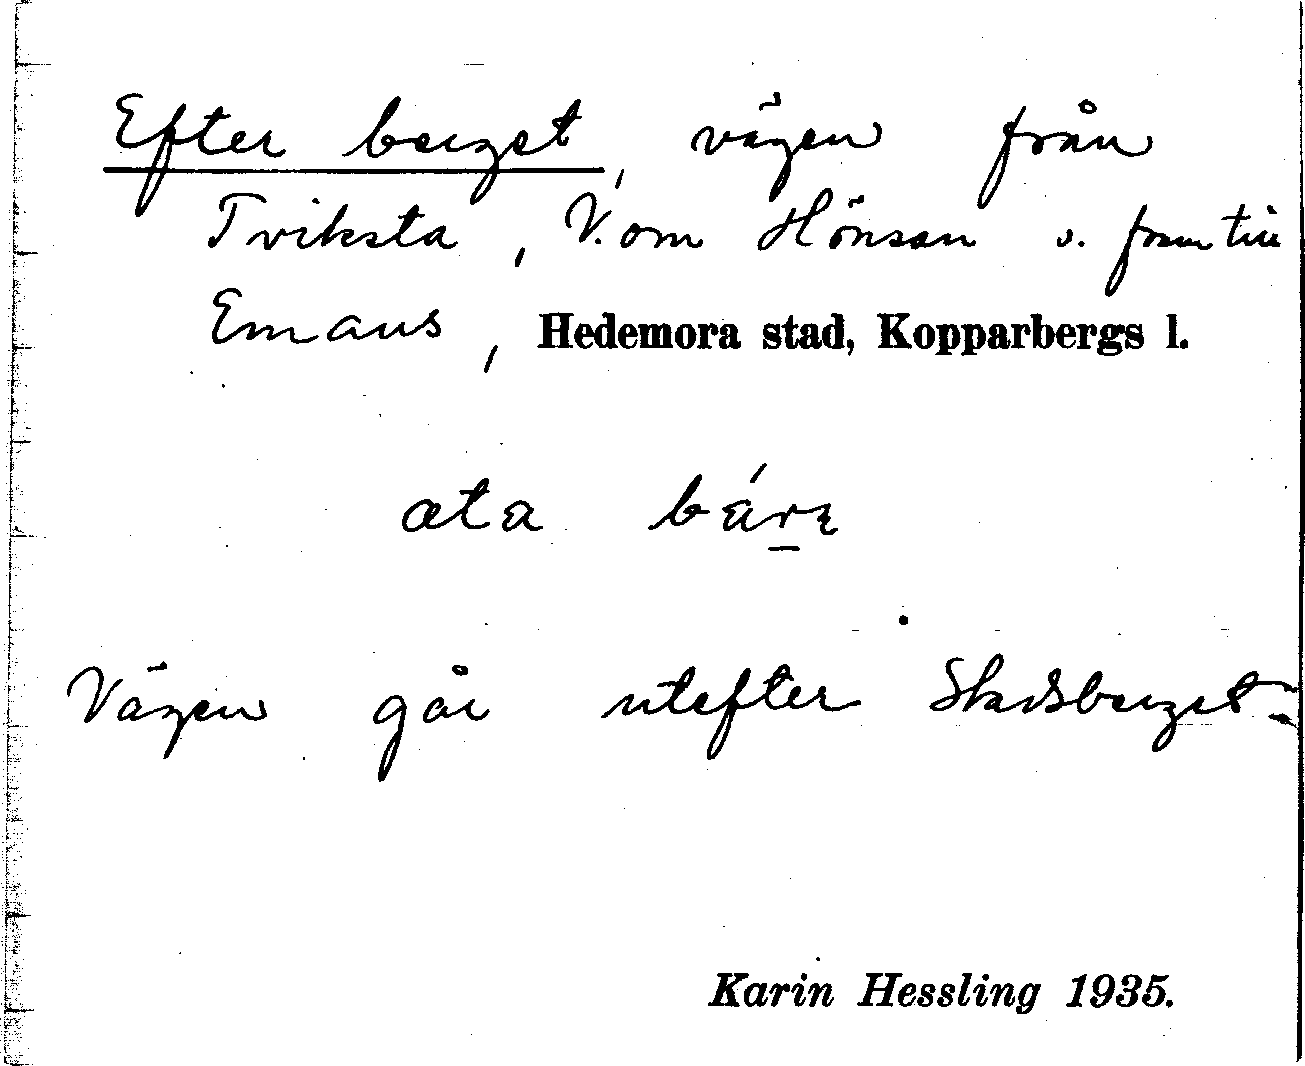 Efter berget, vägen från
Tviksta, V. om Hönsan o. fram till
Emaus, Hedemora stad, Kopparbergs l.
Vägen går utefter Stadsberget.
Karin Hessling 1935.